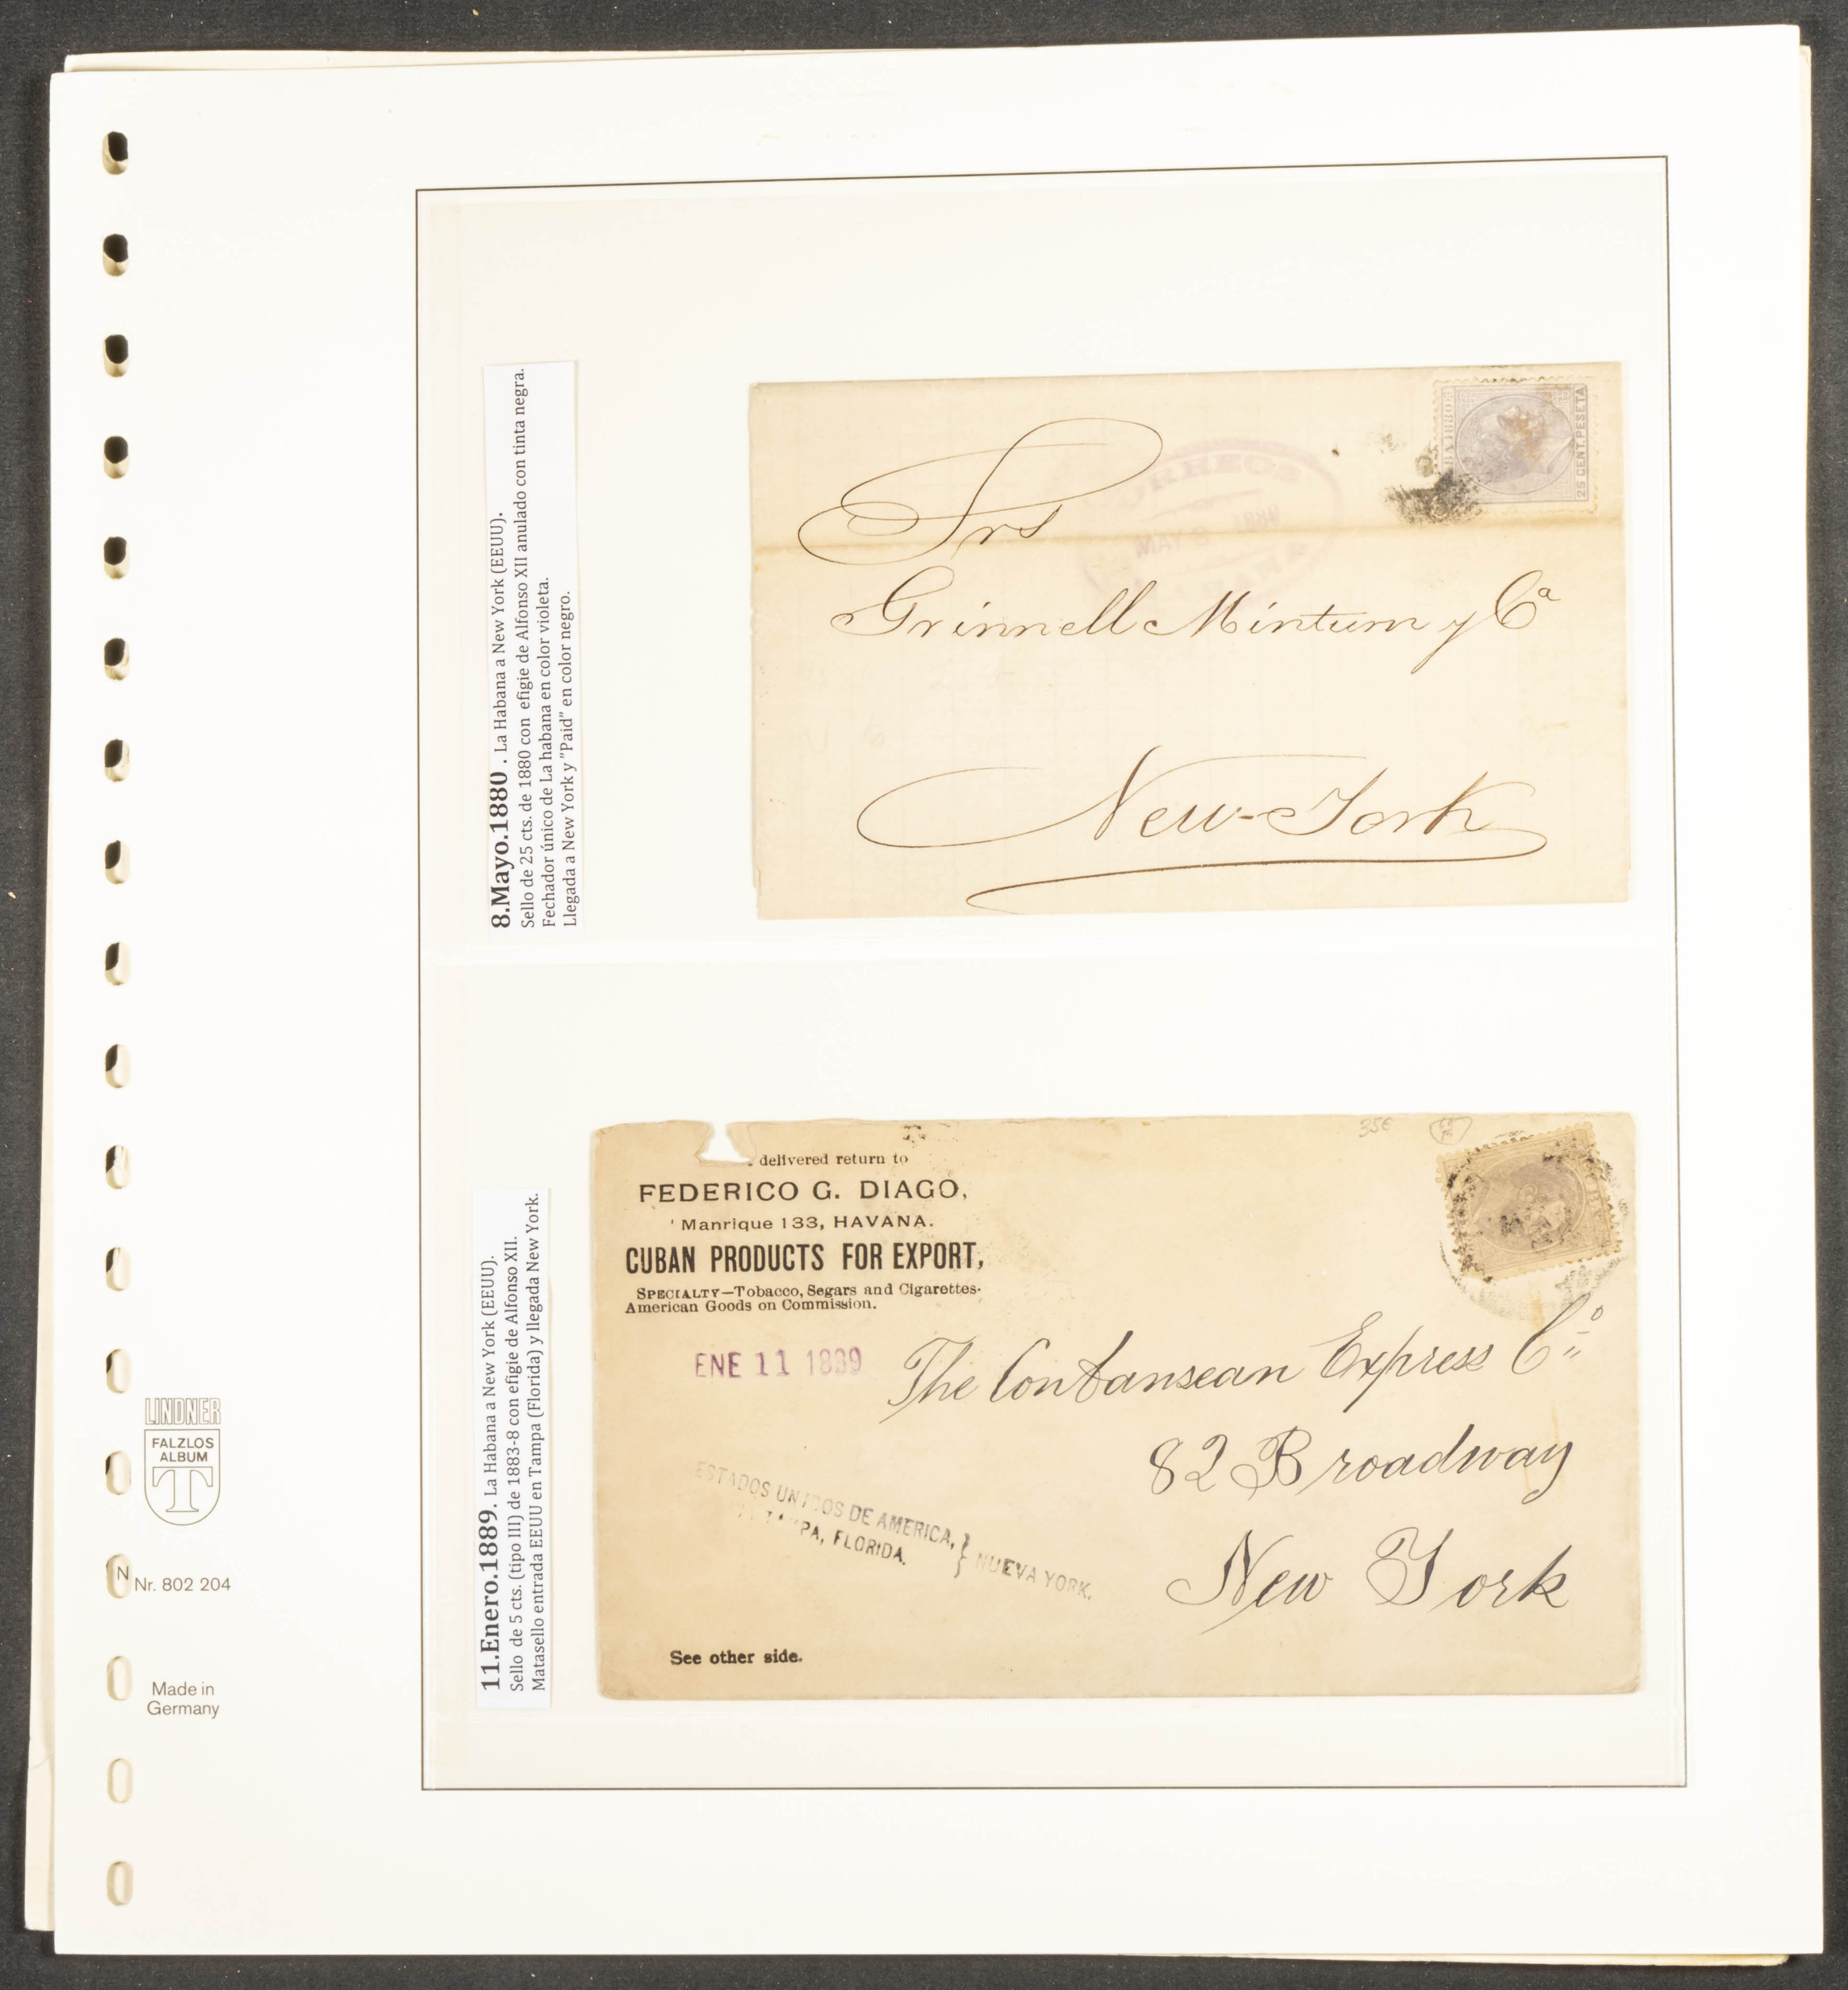 8.Mayo.1880 . La Habana a New York (EEUU).
Sello de 25 cts. de 1880 con efigie de Alfonso XII anulado con tinta negra.
Fechador único de La habana en color violeta.
Llegada a New York y "Paid" en color negro.
25 CENT. PESETA
Srs
Grinnell Minturn y Cª
New-York
11.Enero.1889. La Habana a New York (EEUU).
Sello de 5 cts. (tipo III) de 1883-8 con efigie de Alfonso XII.
Matasello entrada EEUU en Tampa (Florida) y llegada New York.
35€
delivered return to
FEDERICO G. DIAGO,
Manrique 133, HAVANA.
CUBAN PRODUCTS FOR EXPORT,
SPECIALTY—Tobacco, Segars and Cigarettes.
American Goods on Commission.
ENE 11 1889
The Contansean Express Cº
82 Broadway
New York
ESTADOS UNIDOS DE AMERICA,
TAMPA, FLORIDA. } NUEVA YORK.
See other side.
LINDNER
FALZLOS
ALBUM
T
N
Nr. 802 204
Made in
Germany